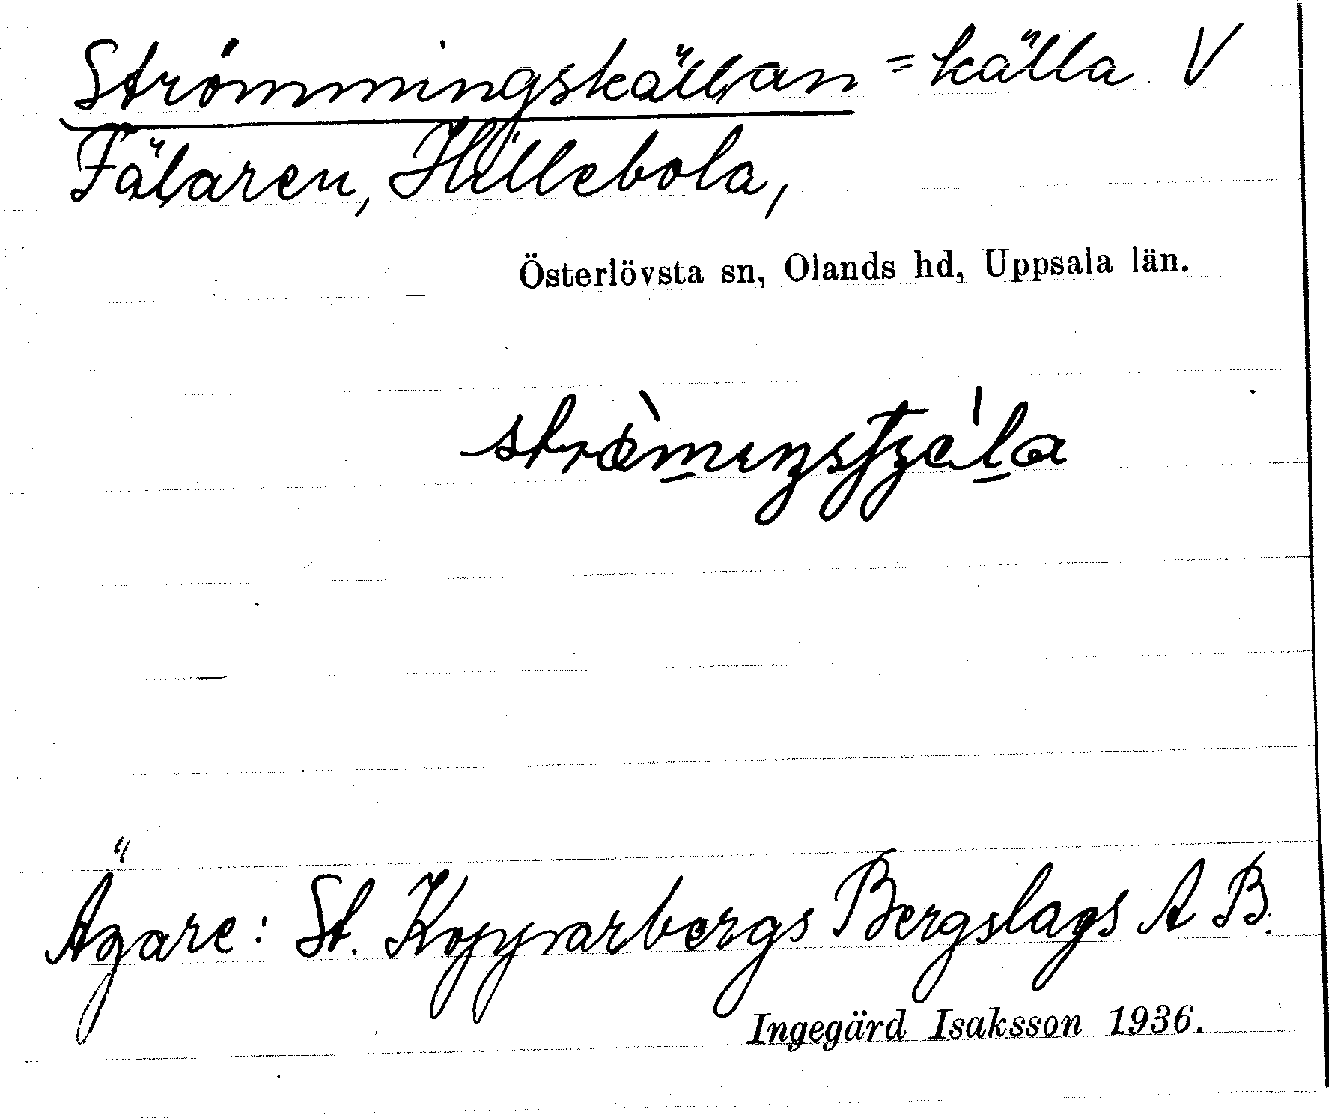 Strömmingskällan = källa V
Fälaren, Hillebola,
Österlövsta sn, Olands hd, Uppsala län.
Ägare: St. Kopparbergs Bergslags A B.
Ingegärd Isaksson 1936.